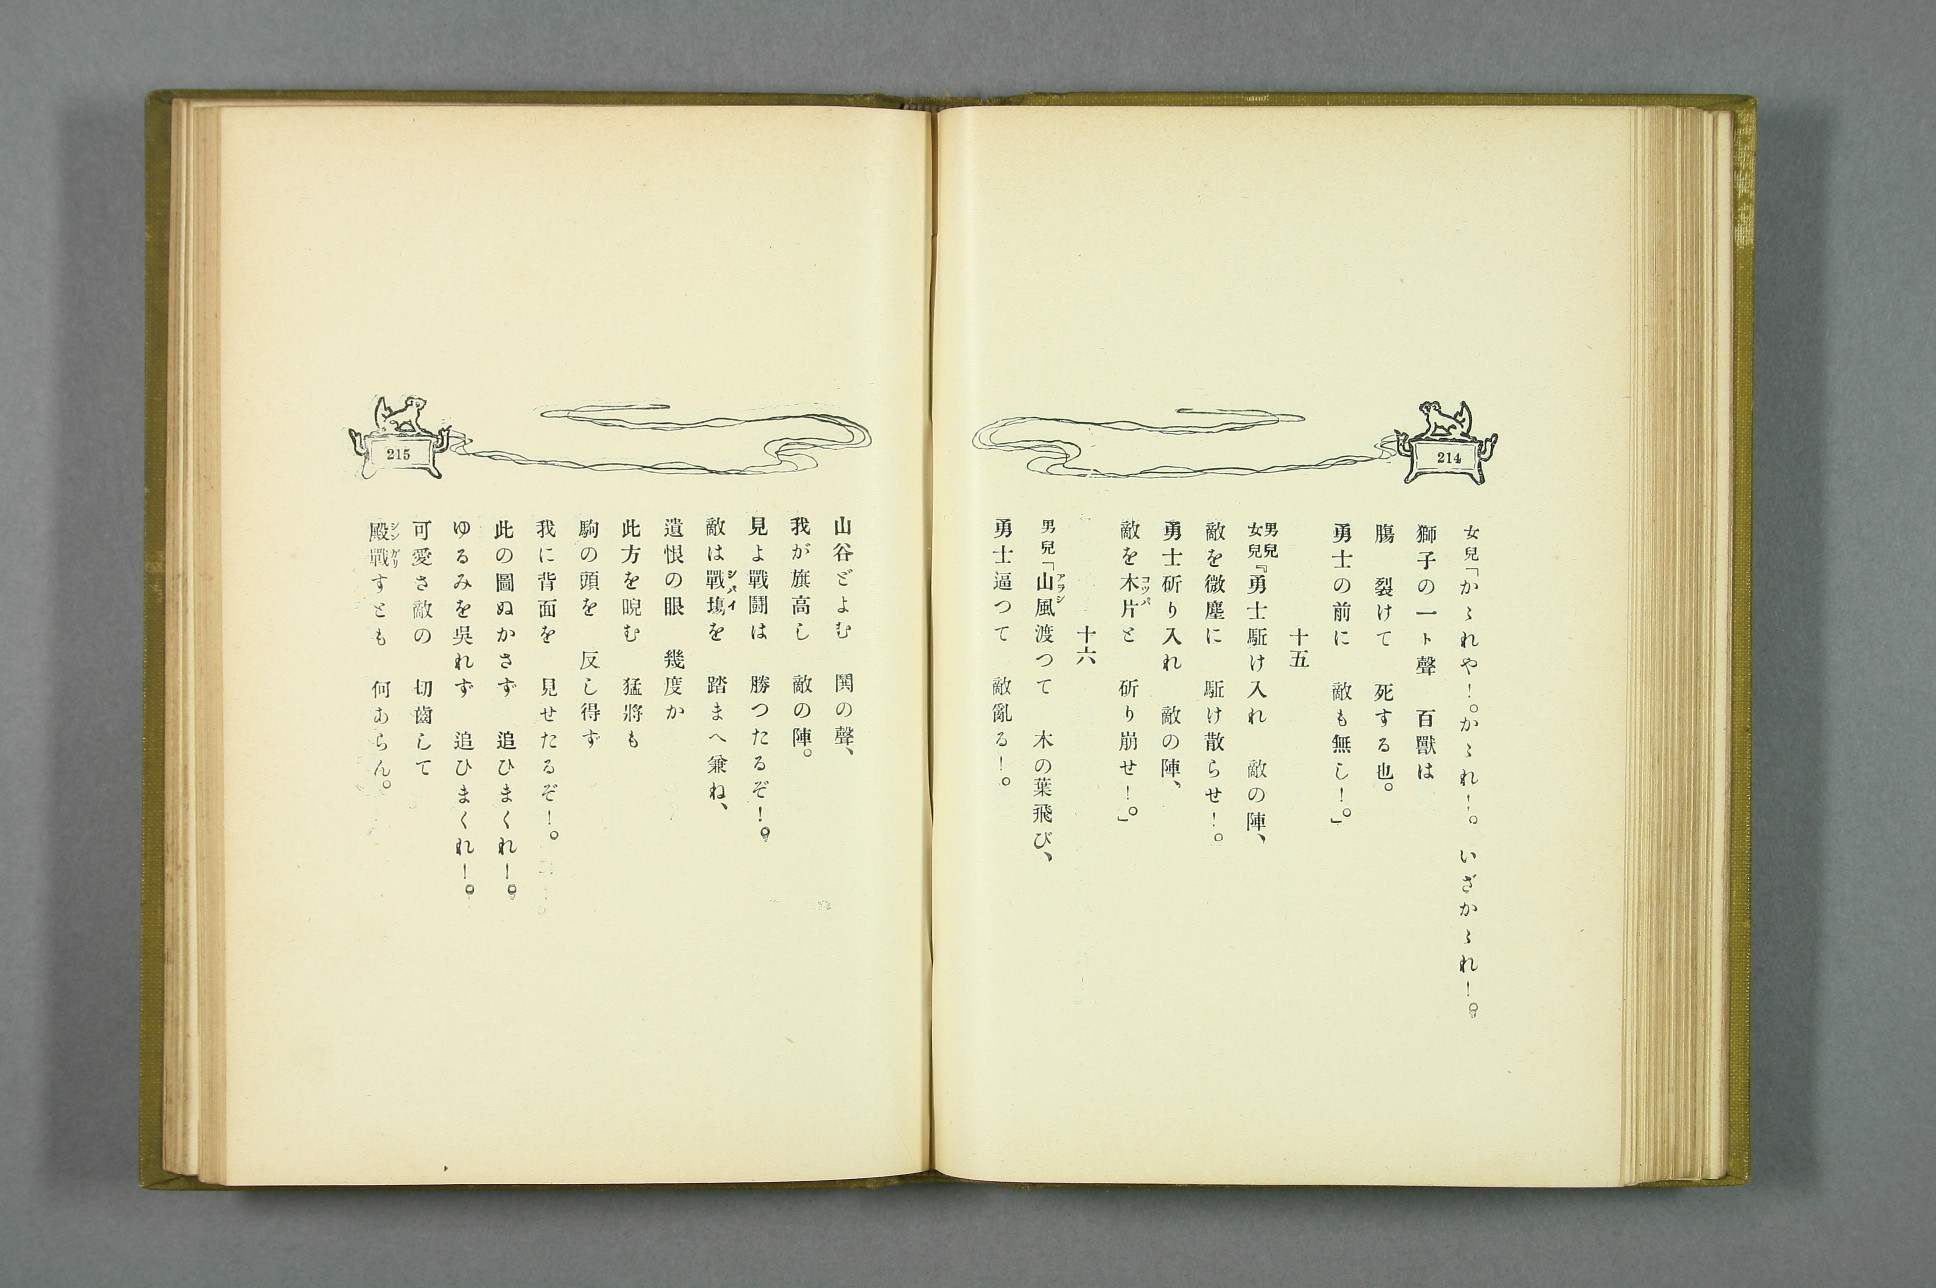 214
女兒「かゝれや！。かゝれ！。いざかゝれ！。
獅子の一ト聲　百獸は
膓　裂けて　死する也。
勇士の前に　敵も無し！。」
十五
男兒女兒『勇士駈け入れ　敵の陣、
敵を微塵に　駈け散らせ！。
勇士斫り入れ　敵の陣、
敵を木片と　斫り崩せ！。」
コツパ
十六
男兒「山風渡つて　木の葉飛び、
アラシ
勇士逼つて　敵亂る！。
215
山谷どよむ　鬨の聲、
我が旗高し　敵の陣。
見よ戰鬪は　勝つたるぞ！。
敵は戰塲を　踏まへ兼ね、
シバイ
遺恨の眼　幾度か
此方を睨む　猛將も
駒の頭を　反し得ず
我に背面を　見せたるぞ！。
此の圖ぬかさず　追ひまくれ！。
ゆるみを呉れず　追ひまくれ！。
可愛さ敵の　切齒して
殿戰すとも　何あらん。
シンガリ